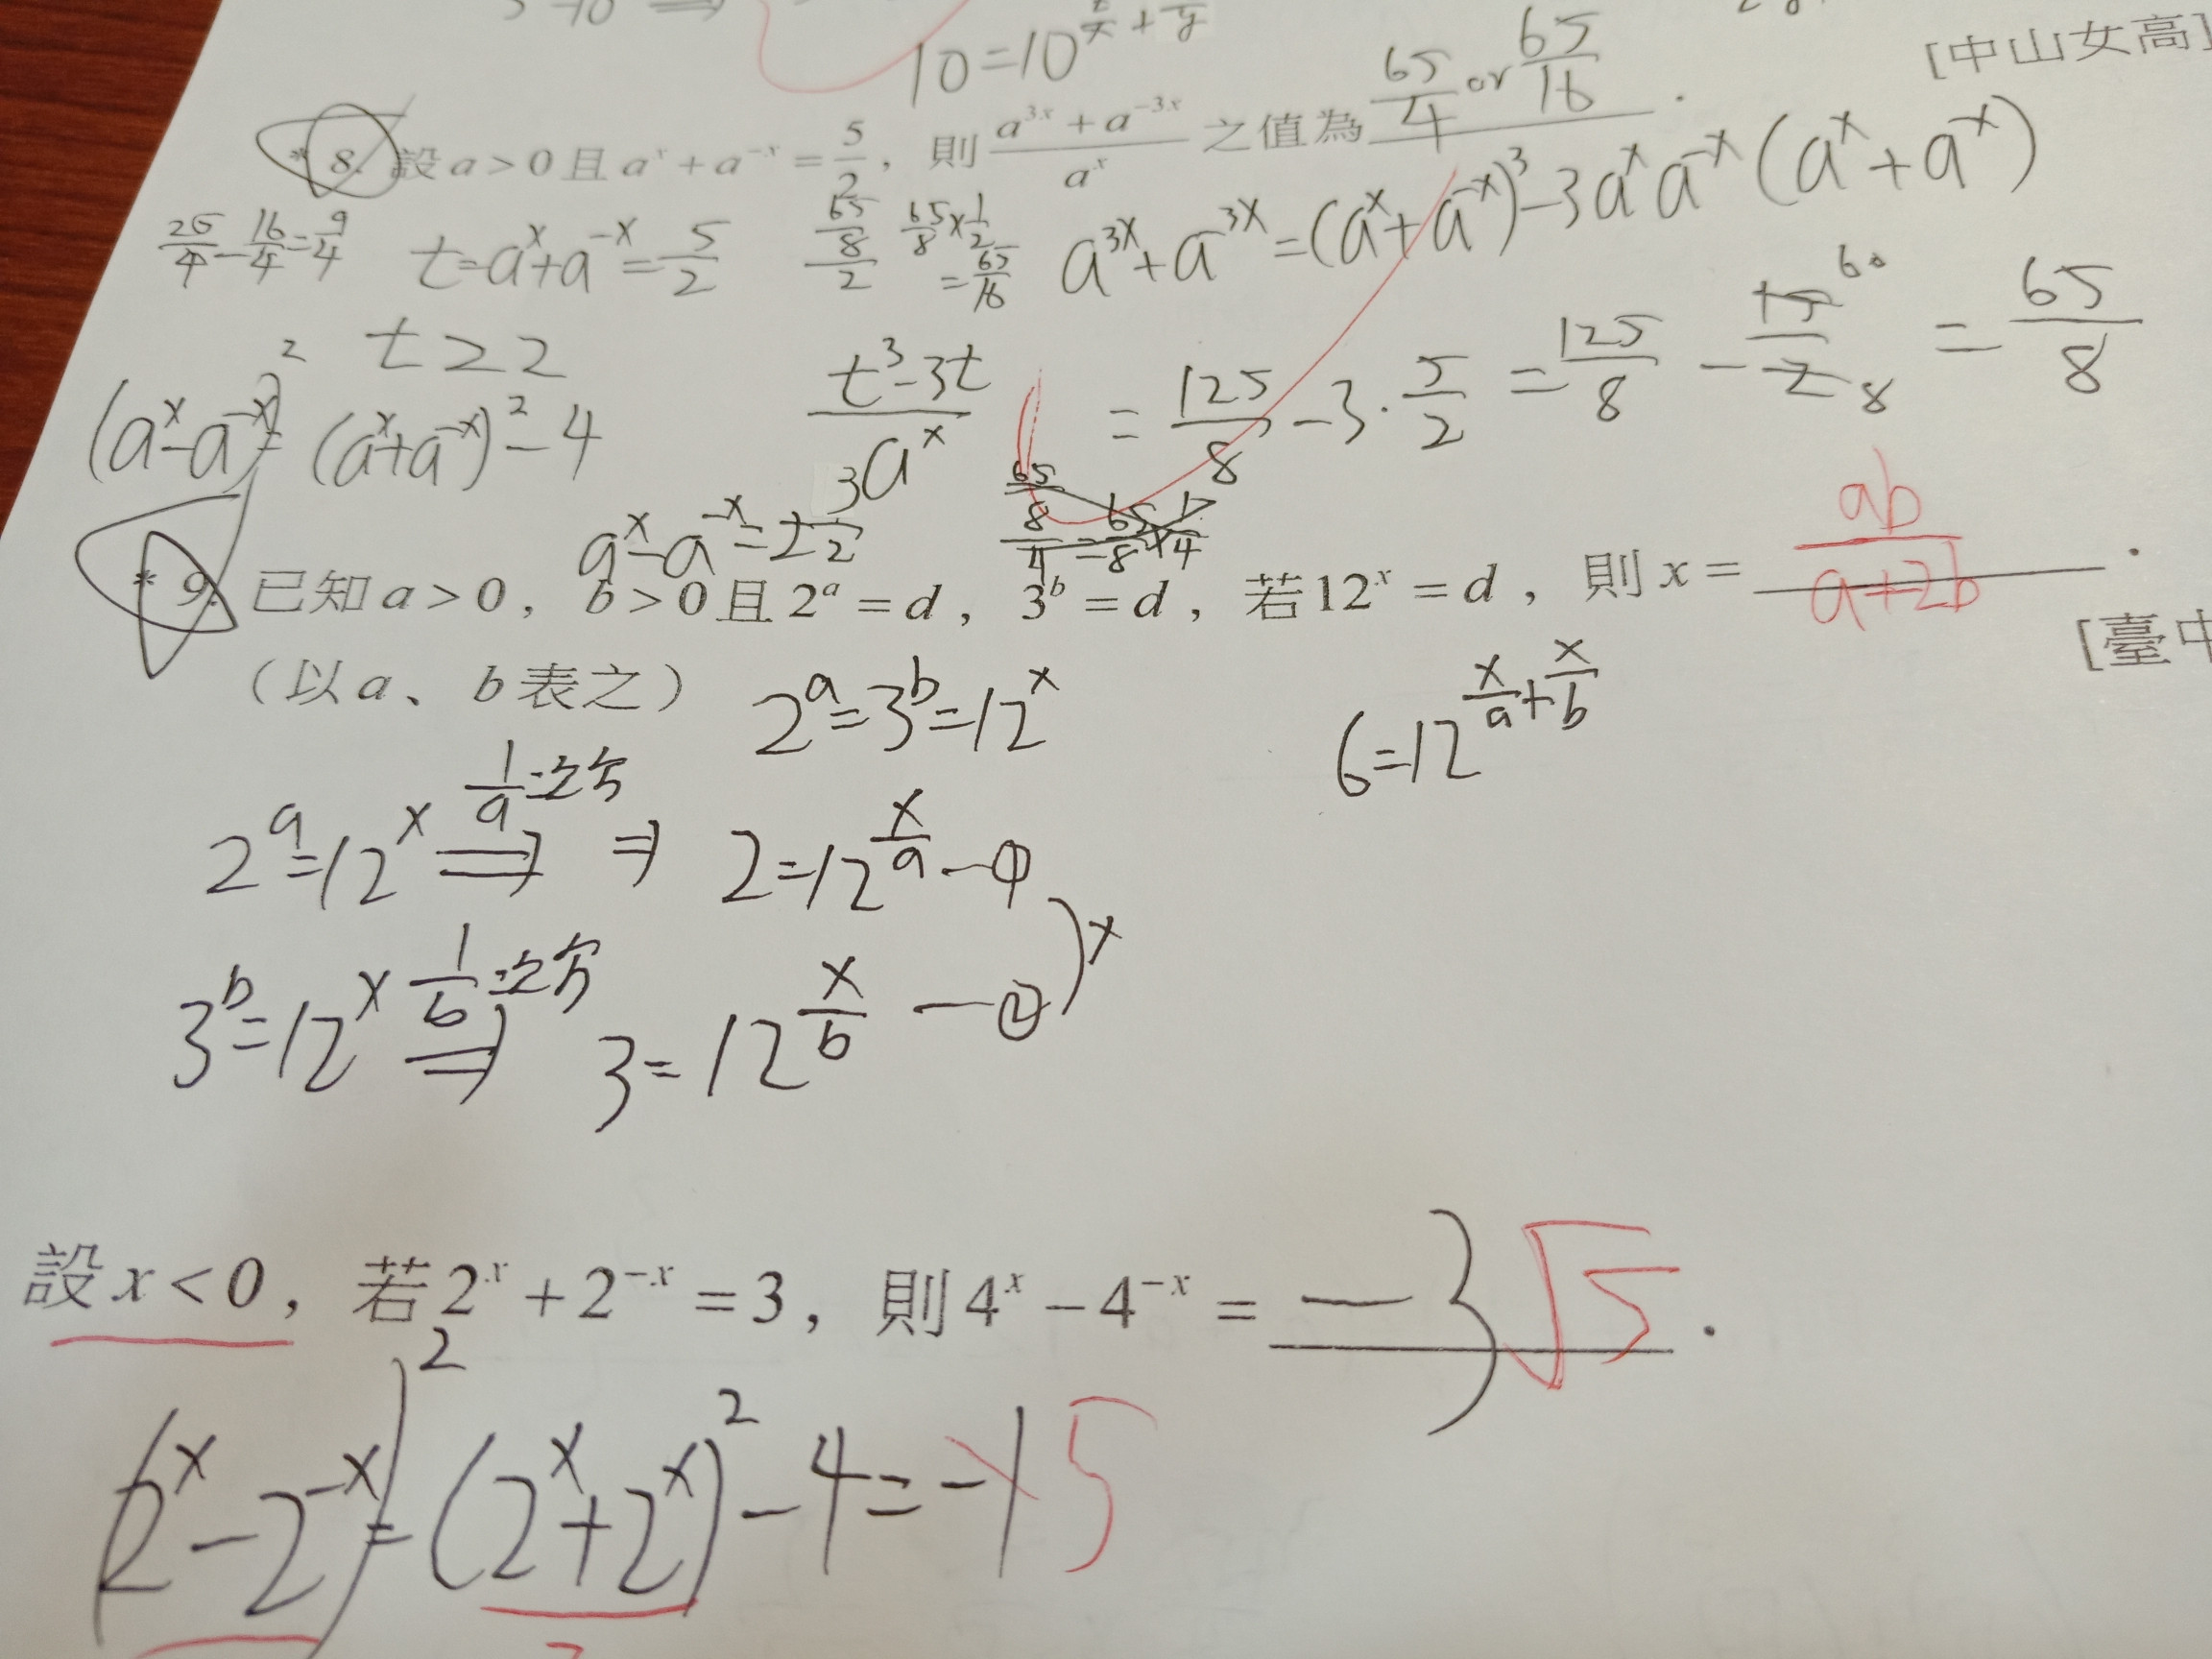 10=10^{\frac{}{x}+\frac{}{y}}
[中山女高]
\frac{65}{4} or \frac{65}{16}
* 8. 設 a > 0 且 a^x + a^{-x} = \frac{5}{2}，則 \frac{a^{3x} + a^{-3x}}{a^x} 之值為 .
\frac{25}{4} - \frac{16}{4} = \frac{9}{4}
t = a^x + a^{-x} = \frac{5}{2}
\frac{\frac{65}{8}}{2} \frac{65}{8} × \frac{1}{2} = \frac{65}{16}
a^{3x} + a^{-3x} = (a^x + a^{-x})^3 - 3a^x a^{-x} (a^x + a^{-x})
t ≥ 2
\frac{t^3 - 3t}{a^x}
= \frac{125}{8} - 3 \cdot \frac{5}{2} = \frac{125}{8} - \frac{60}{8} = \frac{65}{8}
(a^x - a^{-x})^2 = (a^x + a^{-x})^2 - 4
a^x - a^{-x} = ± \frac{3}{2}
\frac{\frac{65}{8}}{4} = \frac{65}{8} × \frac{1}{4}
* 9. 已知 a > 0， b > 0 且 2^a = d， 3^b = d，若 12^x = d，則 x = \frac{ab}{a+2b} .
[臺中
（以 a、 b 表之）
2^a = 3^b = 12^x
6 = 12^{\frac{x}{a} + \frac{x}{b}}
2^a = 12^x \frac{1}{a} 次方 ⇒ ⇒ 2 = 12^{\frac{x}{a}} — ①
3^b = 12^x \frac{1}{b} 次方 ⇒ 3 = 12^{\frac{x}{b}} — ②
) ×
設 x < 0，若 2^x + 2^{-x} = 3，則 4^x - 4^{-x} = -3√5 .
(2^x - 2^{-x})^2 = (2^x + 2^x)^2 - 4 = -1 5